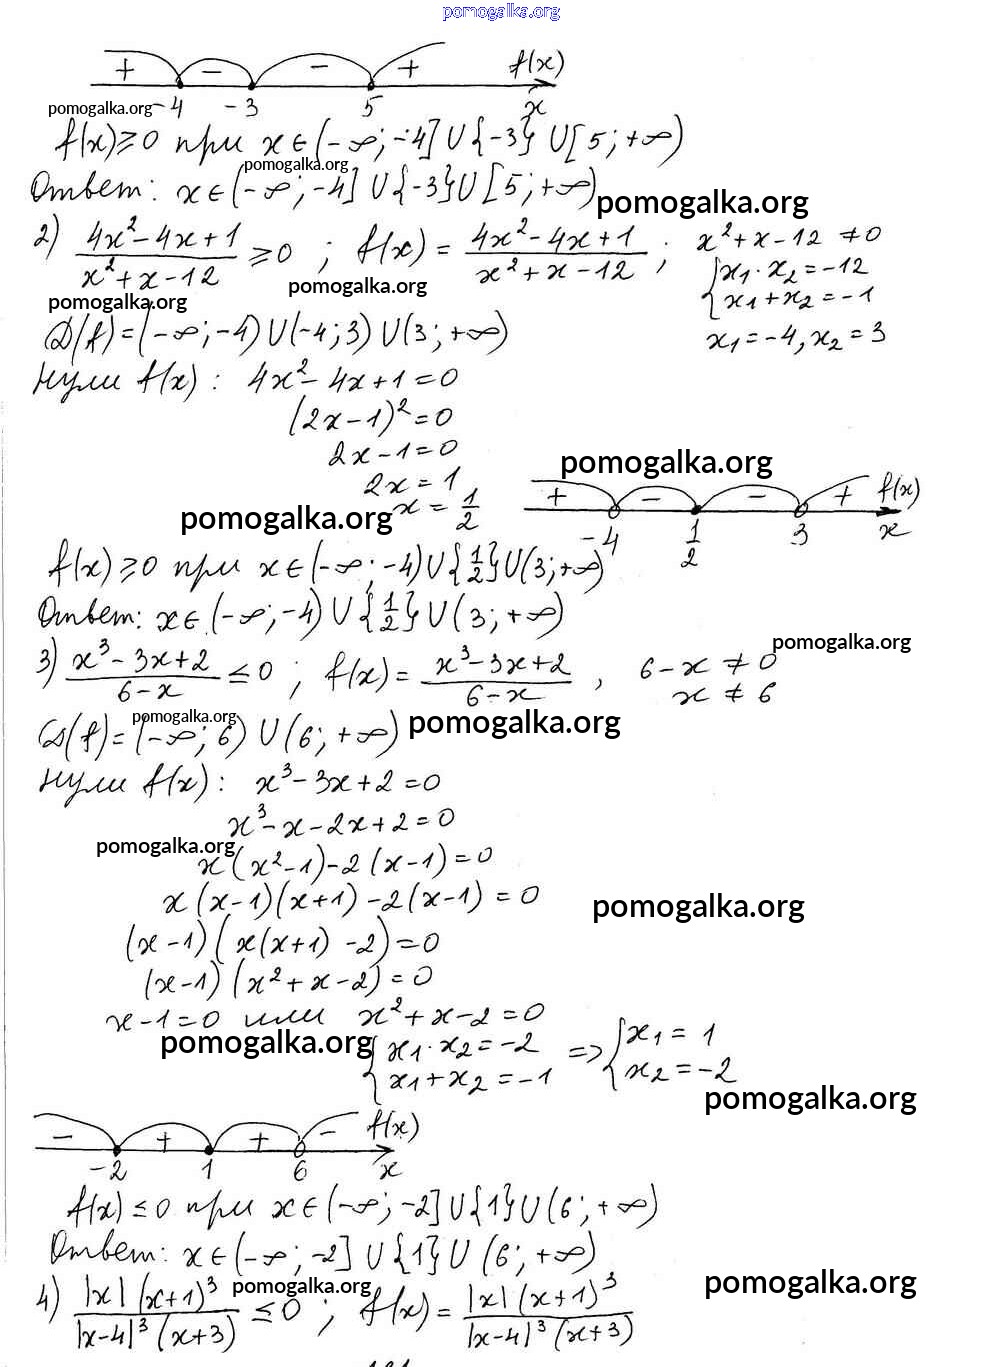 pomogalka.org
+ − − + f(x)
pomogalka.org −4 −3 5 x
f(x)≥0 при x∈(−∞;−4]∪{−3}∪[5;+∞)
pomogalka.org
Ответ: x∈(−∞;−4]∪{−3}∪[5;+∞)
pomogalka.org
2) (4x²−4x+1)/(x²+x−12) ≥0 ; f(x) = (4x²−4x+1)/(x²+x−12) ; x²+x−12 ≠0
{x₁·x₂=−12
pomogalka.org pomogalka.org {x₁+x₂=−1
D(f)=(−∞;−4)∪(−4;3)∪(3;+∞) x₁=−4, x₂=3
Нули f(x): 4x²−4x+1=0
(2x−1)²=0
2x−1=0
pomogalka.org
2x=1
+ − − + f(x)
pomogalka.org x=1/2
−4 1/2 3 x
f(x)≥0 при x∈(−∞;−4)∪{1/2}∪(3;+∞)
Ответ: x∈(−∞;−4)∪{1/2}∪(3;+∞)
pomogalka.org
3) (x³−3x+2)/(6−x) ≤0 ; f(x)= (x³−3x+2)/(6−x) , 6−x ≠0
x ≠ 6
pomogalka.org pomogalka.org
D(f)=(−∞;6)∪(6;+∞)
Нули f(x): x³−3x+2=0
x³−x−2x+2=0
pomogalka.org
x(x²−1)−2(x−1)=0
x(x−1)(x+1)−2(x−1)=0
pomogalka.org
(x−1)(x(x+1)−2)=0
(x−1)(x²+x−2)=0
x−1=0 или x²+x−2=0
pomogalka.org {x₁·x₂=−2 => {x₁=1
{x₁+x₂=−1 {x₂=−2
pomogalka.org
− + + − f(x)
−2 1 6 x
f(x)≤0 при x∈(−∞;−2]∪{1}∪(6;+∞)
Ответ: x∈(−∞;−2]∪{1}∪(6;+∞)
pomogalka.org pomogalka.org
4) |x|(x+1)³/(|x−4|³(x+3)) ≤0 ; f(x)= |x|(x+1)³/(|x−4|³(x+3))